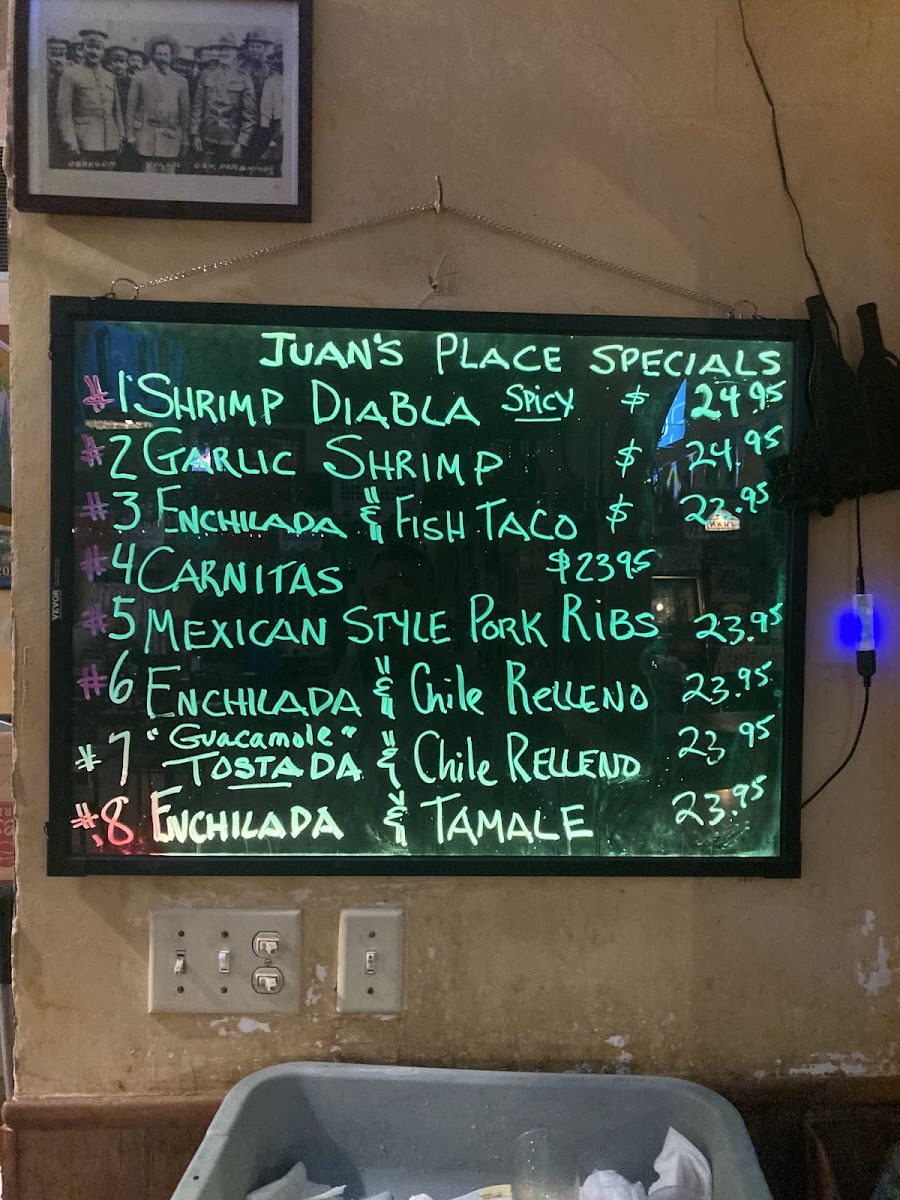 OBREGON VILLA GEN. PERSHING
JUAN'S PLACE SPECIALS
#1 SHRIMP DIABLA SPICY $ 24.95
#2 GARLIC SHRIMP $ 24.95
#3 ENCHILADA "&" FISH TACO $ 23.95
#4 CARNITAS $23.95
#5 MEXICAN STYLE PORK RIBS 23.95
#6 ENCHILADA "&" Chile RELLENO 23.95
#7 "Guacamole" TOSTADA "&" Chile RELLENO 23.95
#8 ENCHILADA "&" TAMALE 23.95
VEVOR